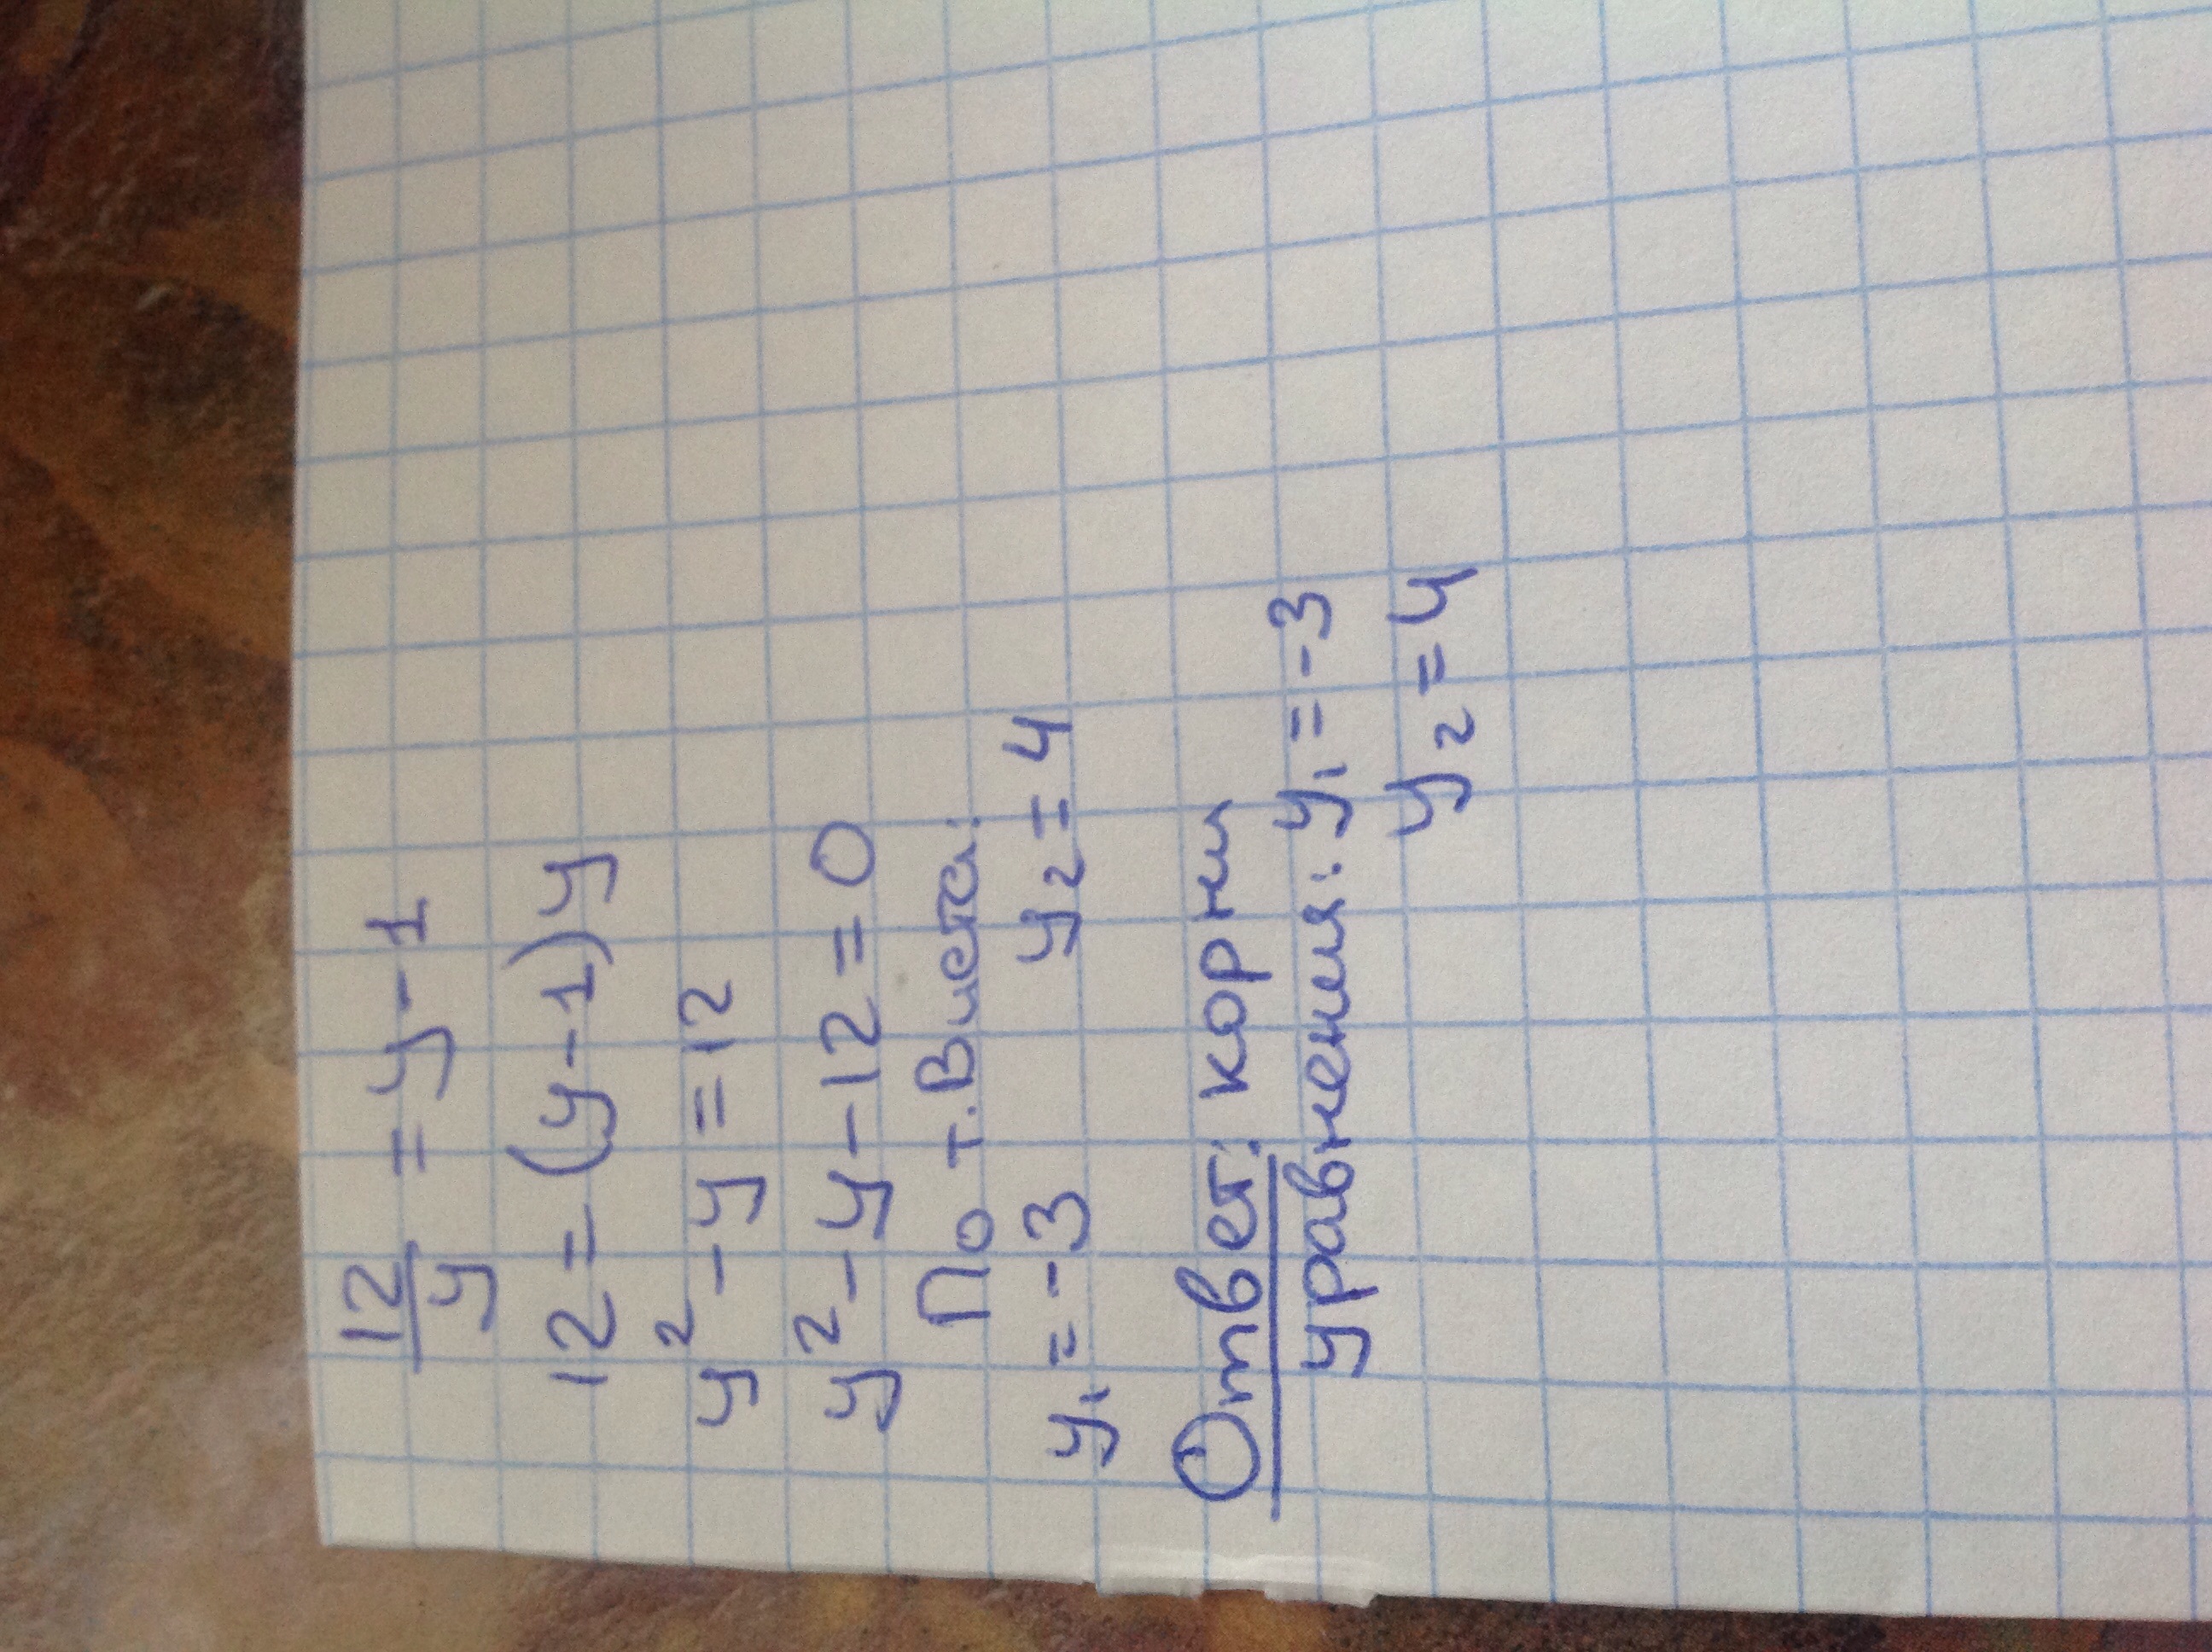 12/y = y-1
12 = (y-1)y
y² - y = 12
y² - y - 12 = 0
По т. Виета:
y₁ = -3 y₂ = 4
Ответ: корни
уравнения: y₁ = -3
y₂ = 4